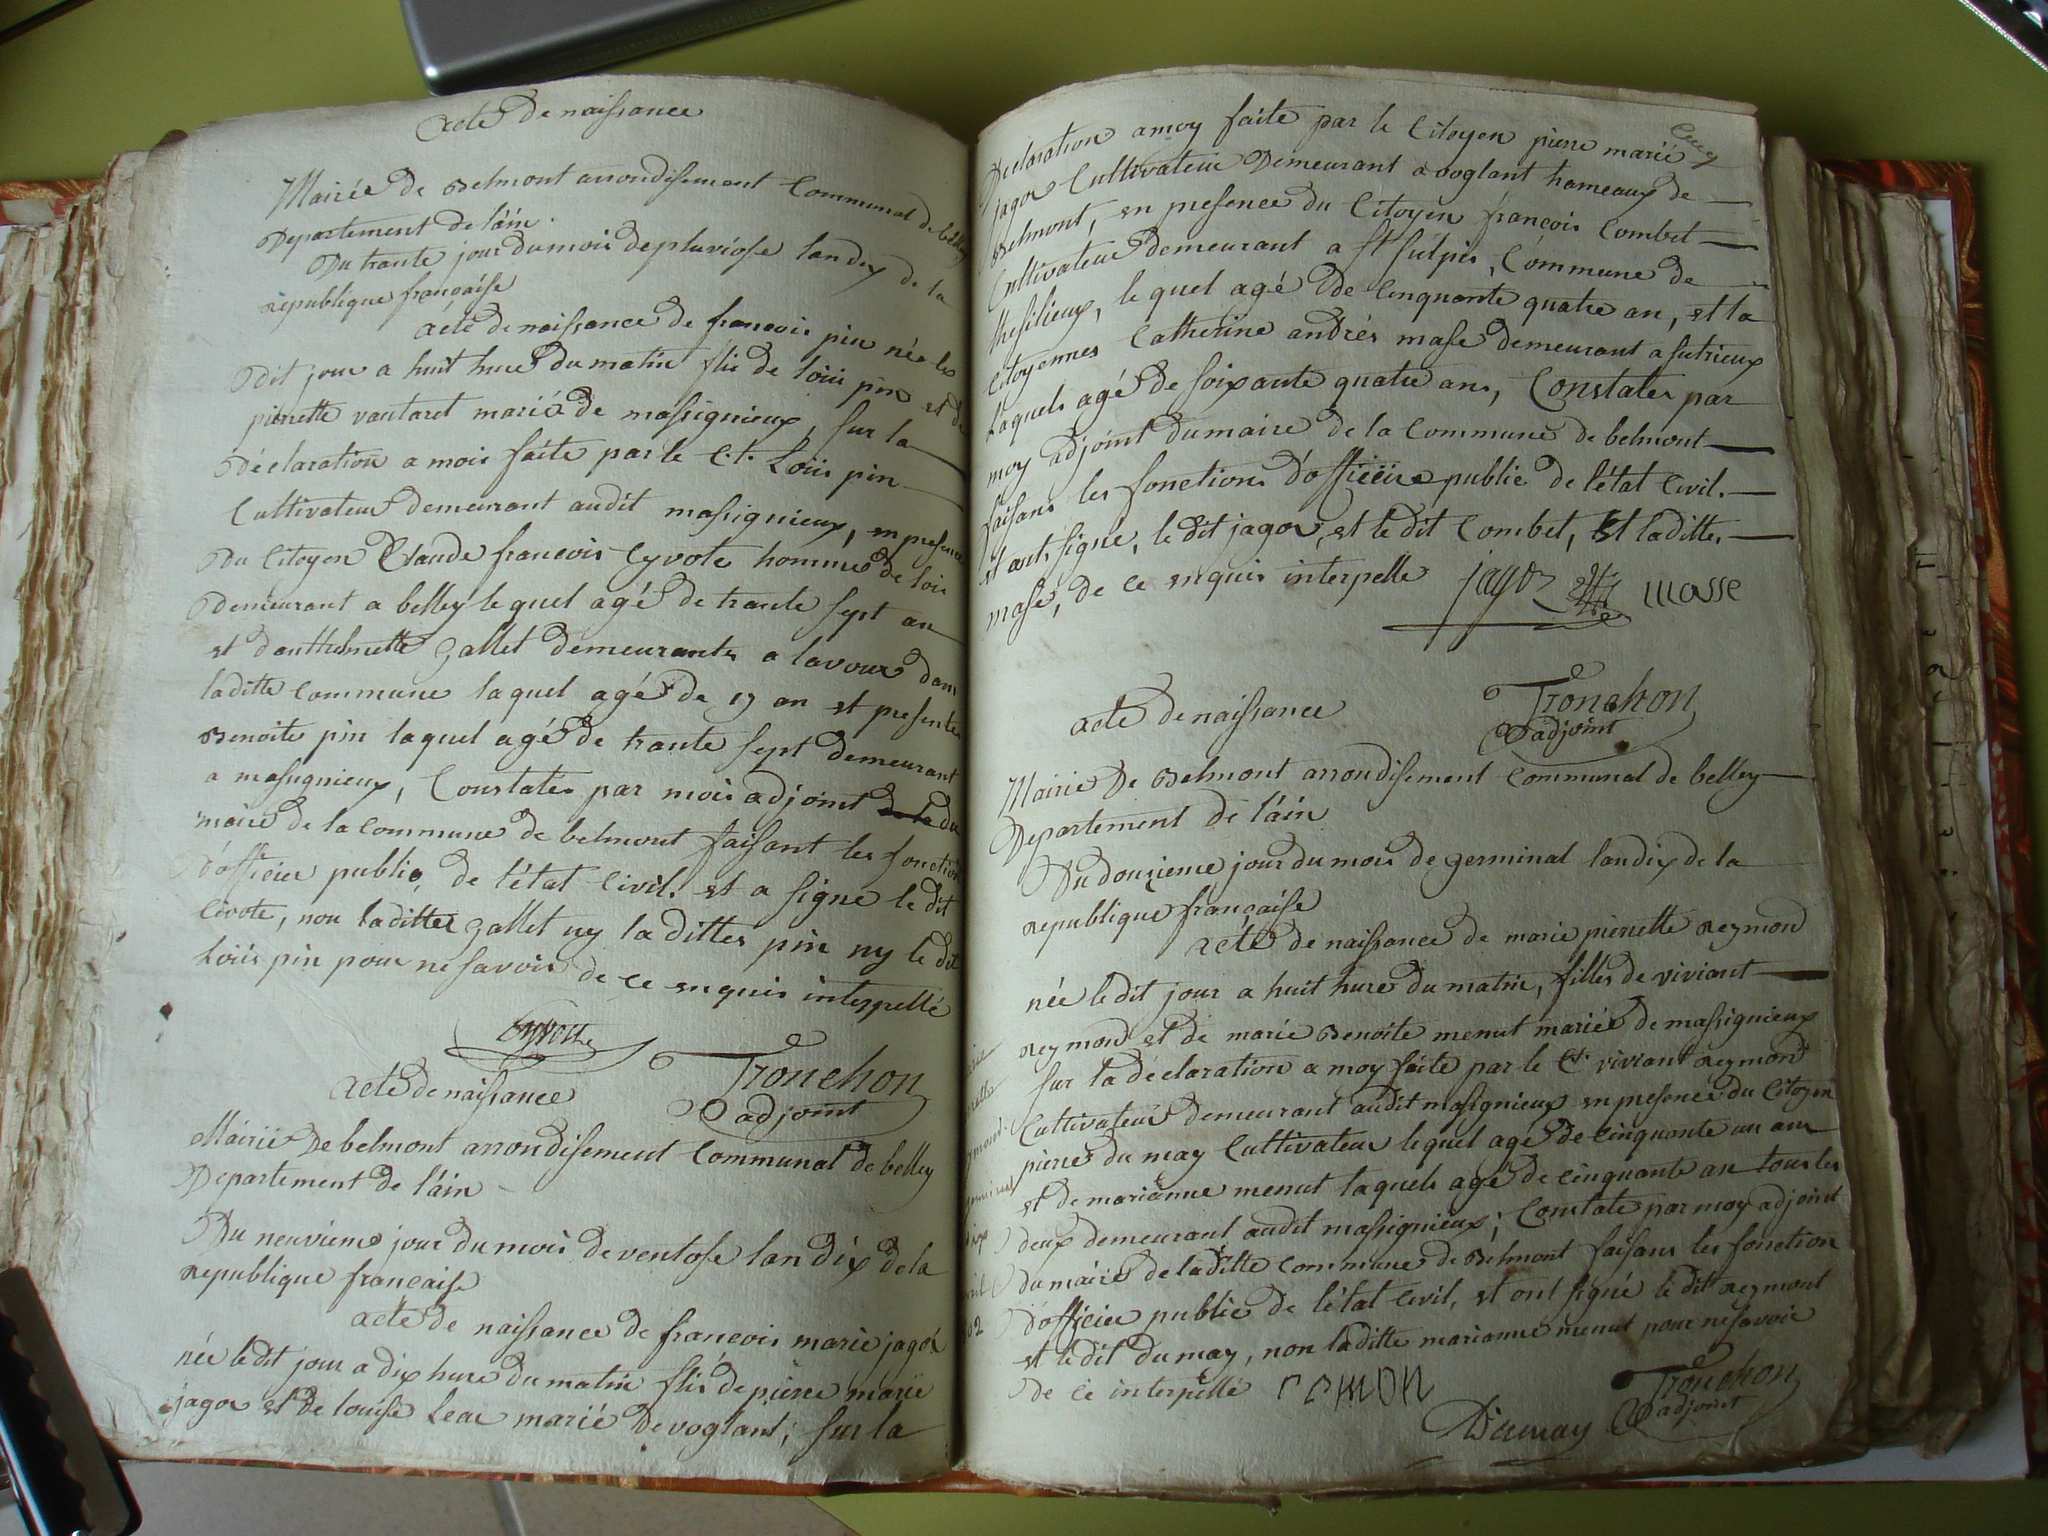 acte de naissance
Mairie de Belmont arrondisement Communal de belley
Departement de láin.
Du trante jour du mois depluviose landix de la
republique françáise
acte de naissance de francois pin née le
dit jour a huit hure du matin flis de loüis pin et de
pierrette vautaret marié de massignieux, sur la
déclaration a mois faite par le Ct. Loüis pin
Cultivateur demeurant audit massignieux, en presence
Du Citoyen Claude francois Cyvote homme de loix
demeurant a belley le quel agé de trante sept an
et danthelmette gallet demeurante a lavour dans
laditte commune laquel agé de 19 an et presente
Benoite pin laquel agé de trante sept demeurant
a massignieux, Constater par mois adjoint de la du
maire de la commune de belmont faisant les fonction
d'officier public de l'état civil et a signe le dit
Civote, non laditte gallet ny la ditte pin ny le dit
Loüis pin pour ne savoir de ce enquis interpellé
Cyvote
Tronchon
adjoint
acte de naissance
Mairie De belmont arrondisement Communal de belley
Departement de láin
Du neuvieme jour du mois de ventose landix dela
republique francaise
acte de naissance de francois marie jagot
née ledit jour a dix hure du matin flis de pierre marie
jagot et de louise Lear marié de voglant, sur la
Declaration amoy faite par le Citoyen pierre marie
jagot Cultivateur demeurant a voglant hameaux de
Belmont, en presence du Citoyen françois Combet
Cultivateur demeurant a St sulpis, Commune de
thesilieux, le quel agé de cinquante quatre an, et la
Citoyennes Catherine andrés mase demeurant a sutrieux
Laquels agé de soixante quatre an, Constater par
moy adjoint dumaire de la Commune de belmont
faisans les fonctions d'officier public de l'état civil.
et ont signé, le dit jagot, et le dit Combet, et laditte
mase, de ce enquis interpelle
jagoz masse
Tronchon
adjoint
acte de naissance
Mairie De Belmont arrondisement Communal de belley
Departement de láin
Du douzieme jour du mois de germinal landix de la
republique françáise
acte de naissance de marie pierrette Reymond
née le dit jour a huit hure du matin, filles de viviant
Reymond et de marie Benoite menut marié de massignieux
sur la déclaration a moy faite par le Ct. viviant Reymond
Cultivateur demeurant audit massignieux en presence du Citoyen
pierre du may Cultivateur lequel agé de cinquante un an
et de marianne menut laquels agé de cinquante an tous les
deux demeurant audit massignieux; Constate par moy adjoint
du mairie de laditte commune de Belmont faisans les fonction
d'officier public de l'état civil, et ont signé le dit Reymont
et le dit du may, non laditte marianne menut pour nesavoir
de ce interpellé
remon
Dumay
Tronchon
adjoint